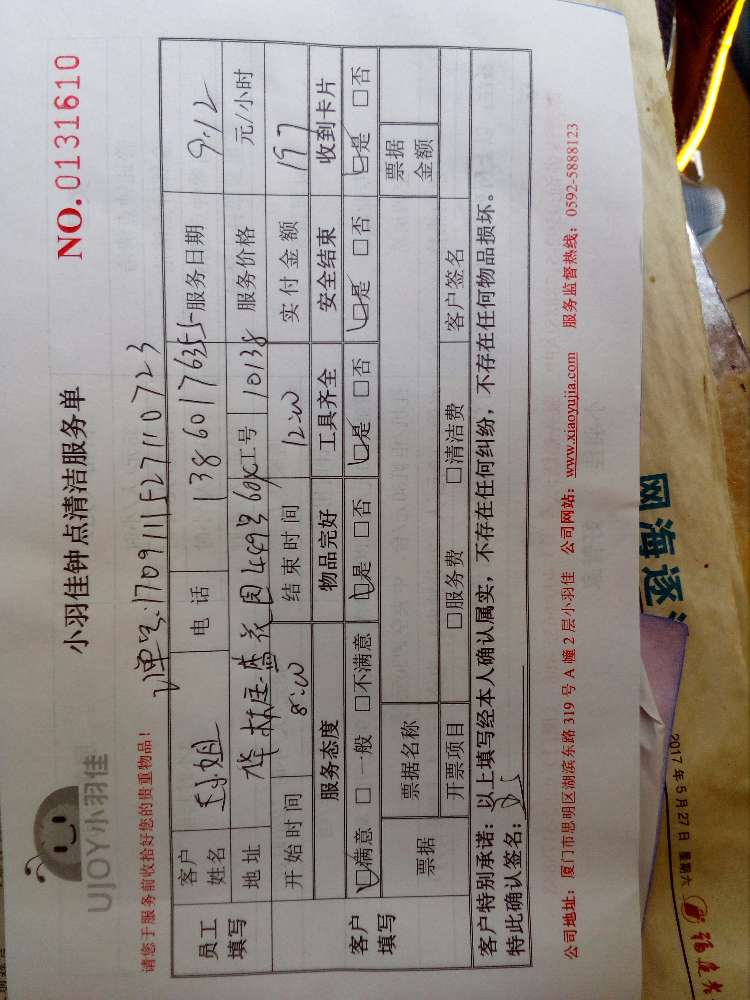 UJOY小羽佳
小羽佳钟点清洁服务单
NO.0131610
请您于服务前收拾好您的贵重物品！
单号:1709111527110723
员工填写
客户姓名 王小姐 电话 13860176355 服务日期 9.12
地址 花园449号60 工号 10138 服务价格 元/小时
开始时间 8:00 结束时间 12:00 实付金额 197
客户填写
服务态度 物品完好 工具齐全 安全结束 收到卡片
☑满意 □一般 □不满意 ☑是 □否 ☑是 □否 ☑是 □否 ☑是 □否
票据 票据名称 票据金额
开票项目 □服务费 □清洁费 客户签名
客户特别承诺：以上填写经本人确认属实，不存在任何纠纷，不存在任何物品损坏。
特此确认签名：
公司地址：厦门市思明区湖滨东路 319 号 A 幢 2 层小羽佳 公司网站：www.xiaoyujia.com 服务监督热线：0592-5888123
网海逐
2017年5月27日 星期六